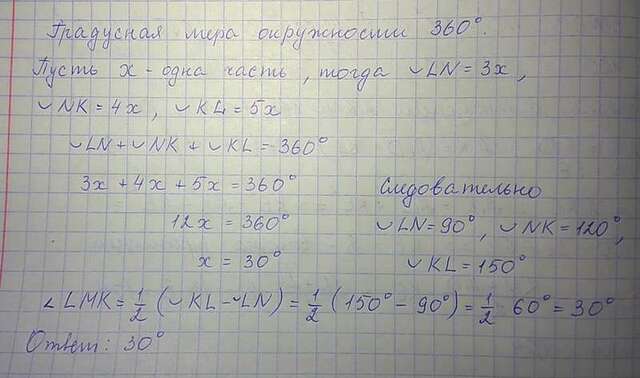 Градусная мера окружности 360°.
Пусть x - одна часть, тогда ◡LN = 3x,
◡NK = 4x, ◡KL = 5x
◡LN + ◡NK + ◡KL = 360°
3x + 4x + 5x = 360°
12x = 360°
x = 30°
Следовательно
◡LN = 90°, ◡NK = 120°,
◡KL = 150°
∠LMK = 1/2 (◡KL - ◡LN) = 1/2 (150° - 90°) = 1/2 60° = 30°
Ответ: 30°